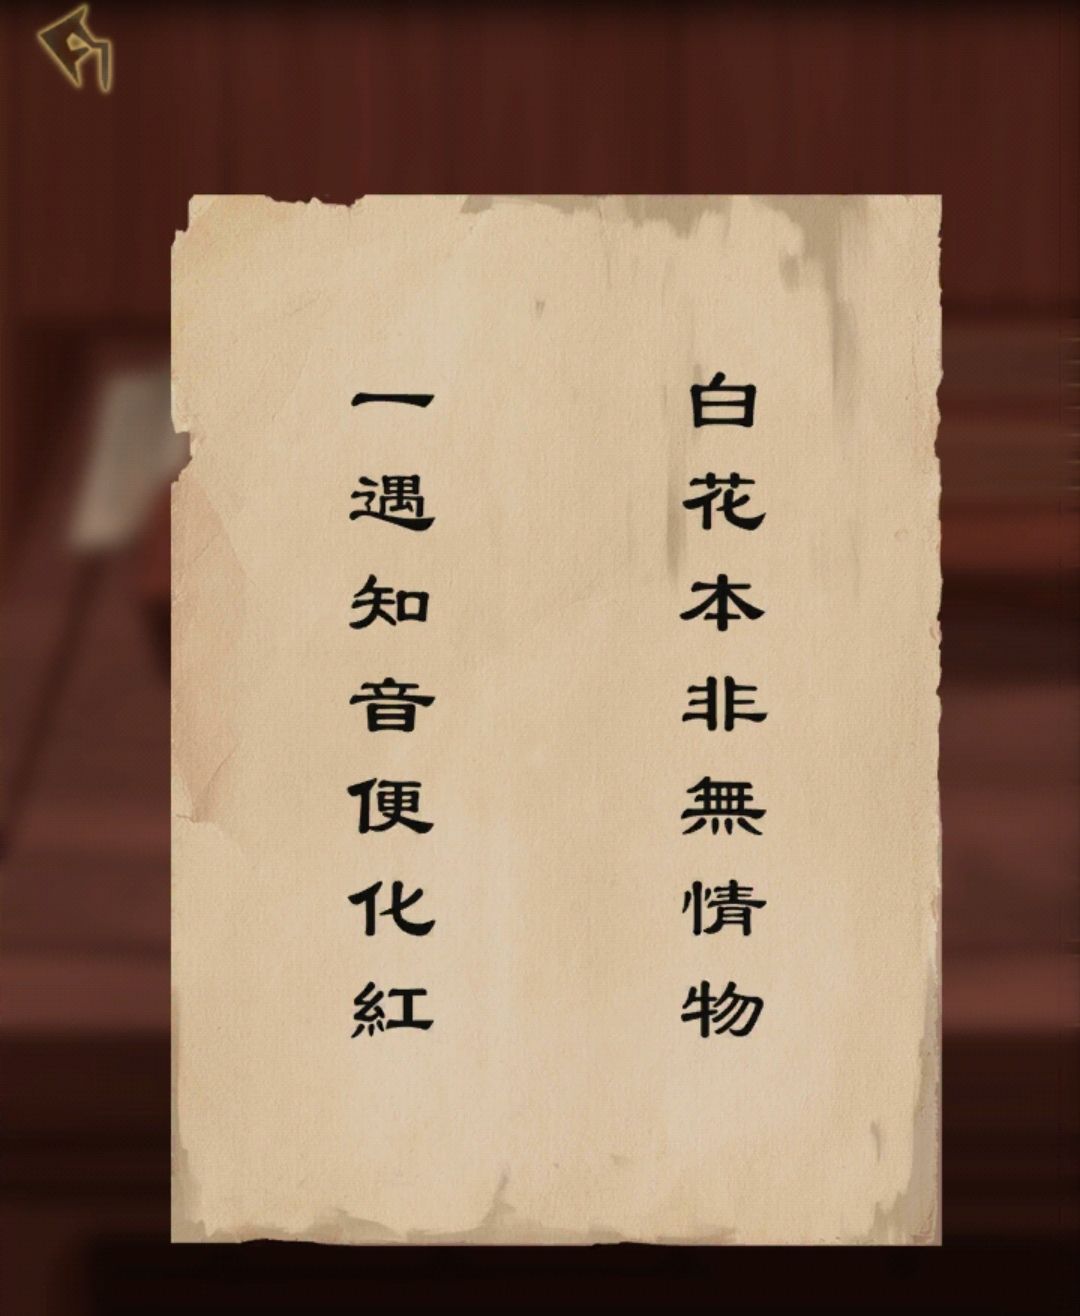 白花本非無情物
一遇知音便化紅